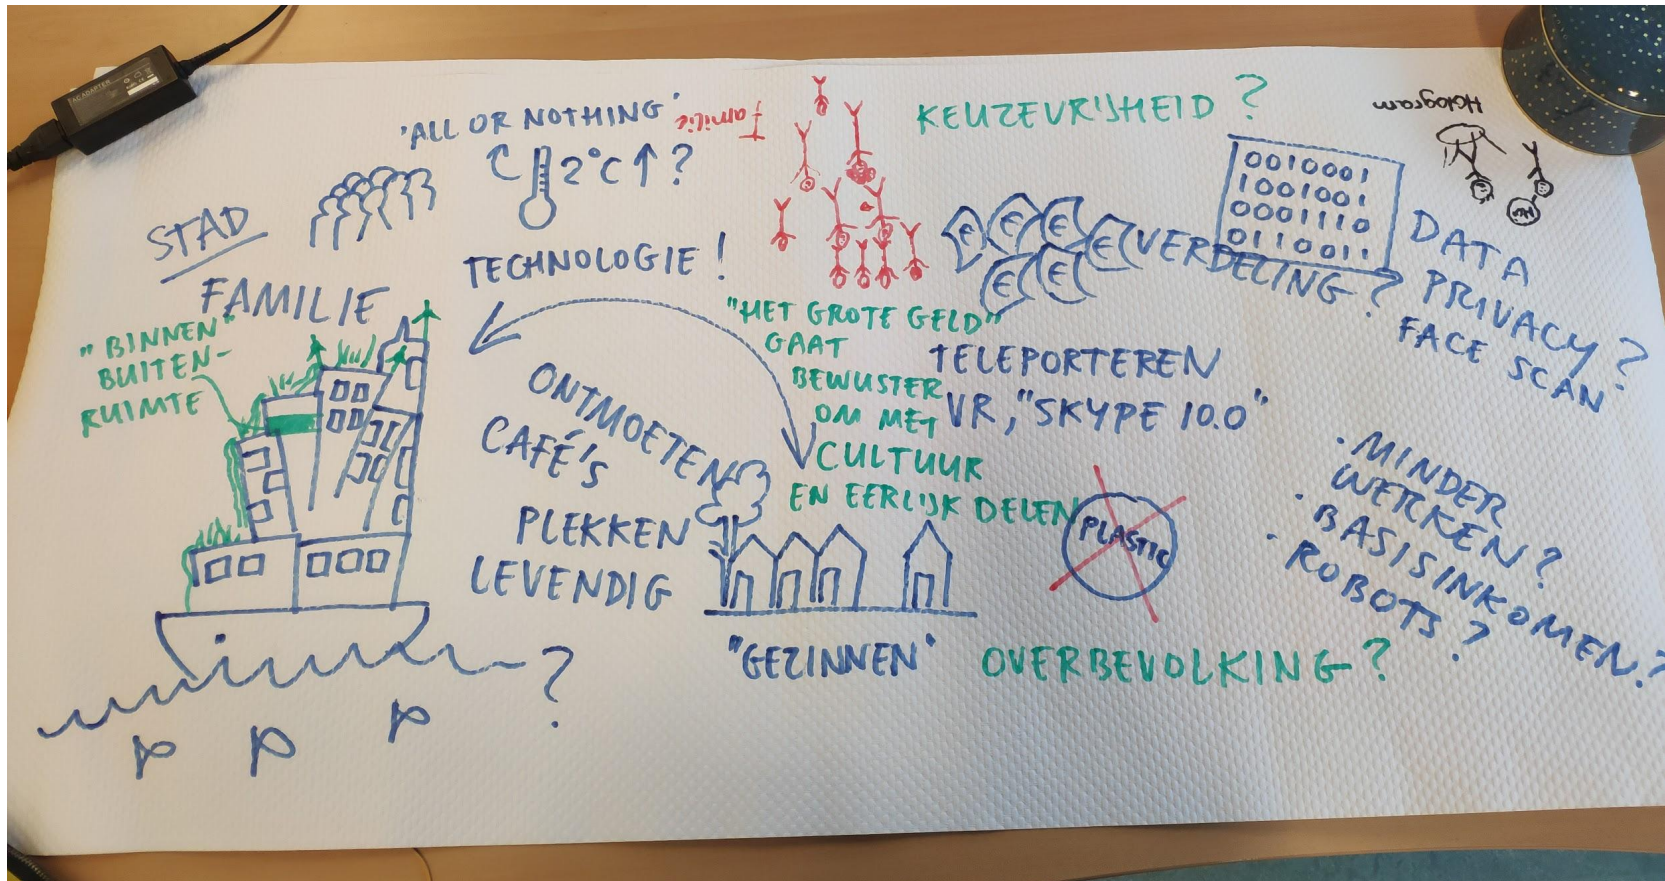 AC ADAPTER
'ALL OR NOTHING'.
Familie
KEUZEVRIJHEID ?
Hologram
2°C ↑ ?
0010001
1001001
0001110
0110011
STAD
FAMILIE
TECHNOLOGIE !
€ € € € € € €
VERDELING ?
DATA
PRIVACY ?
FACE SCAN
"BINNEN"
BUITEN-
RUIMTE
"HET GROTE GELD"
GAAT
BEWUSTER
OM MET
CULTUUR
EN EERLIJK DELEN
TELEPORTEREN
VR, "SKYPE 10.0"
ONTMOETEN
CAFÉ'S
PLEKKEN
LEVENDIG
PLASTIC
· MINDER
WERKEN ?
· BASISINKOMEN ?
· ROBOTS ?
"GEZINNEN"
OVERBEVOLKING ?
?